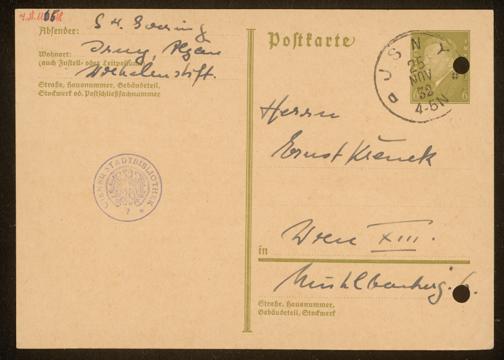 Absender: S. H. Goering
Wohnort: Isny, Allgäu
(auch Zustell- oder Leitpostamt)
Wilhelmstift.
Straße, Hausnummer, Gebäudeteil,
Stockwerk od. Postschließfachnummer
WIENER STADTBIBLIOTHEK
Postkarte
ISNY
25
NOV
32
4-5N
6
Herrn
Ernst Křenek
in Wien XIII.
Mühlbachergasse 6.
Straße, Hausnummer,
Gebäudeteil, Stockwerk